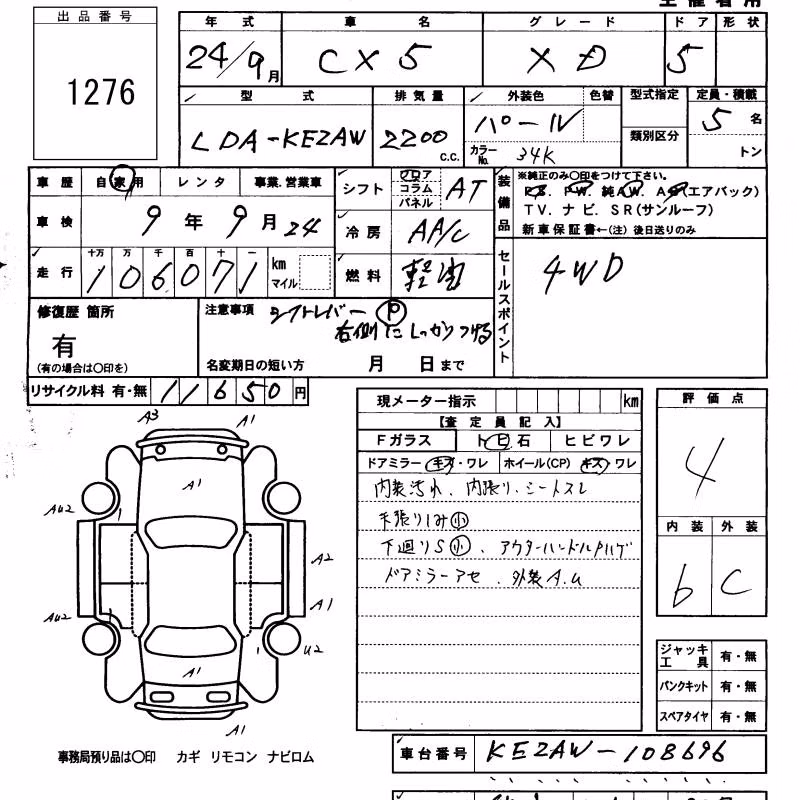 出品番号
1276
年式 車名 グレード ドア 形状
24/9月 CX5 XD 5
型式 排気量 外装色 色替 型式指定 定員・積載
LDA-KE2AW 2200 C.C. パール 類別区分 5名
カラーNo. 34K トン
車歴 自家用 レンタ 事業.営業車
シフト フロア コラム パネル AT
装備品 ※純正のみ〇印をつけて下さい。
P.S. P.W. 純A.W. A.B(エアバック)
TV. ナビ. SR(サンルーフ)
新車保証書←(注) 後日送りのみ
車検 9年9月24
冷房 AA/C
走行 十万 万 千 百 十 一
106071 km マイル
燃料 軽油
セールスポイント 4WD
修復歴 箇所
有
(有の場合は〇印を)
注意事項 シフトレバー Ⓟ
右側にしっかりつける
名変期日の短い方 月 日まで
リサイクル料 有・無 11650円
現メーター指示 km
【査定員記入】
Fガラス トビ石 ヒビワレ
ドアミラー キズ・ワレ ホイール(CP) キズ・ワレ
内装汚れ、内張り.シートスレ
天張りシミ小
下廻りS小、アウターハンドルPハゲ
ドアミラーアセ、外装A.U
評価点
4
内装 外装
b C
A3 A1
A1
AU2 1
A2
A1
AU2 1 1 U2
A1
A1
ジャッキ工具 有・無
パンクキット 有・無
スペアタイヤ 有・無
事務局預り品は〇印 カギ リモコン ナビロム
車台番号 KE2AW-108696